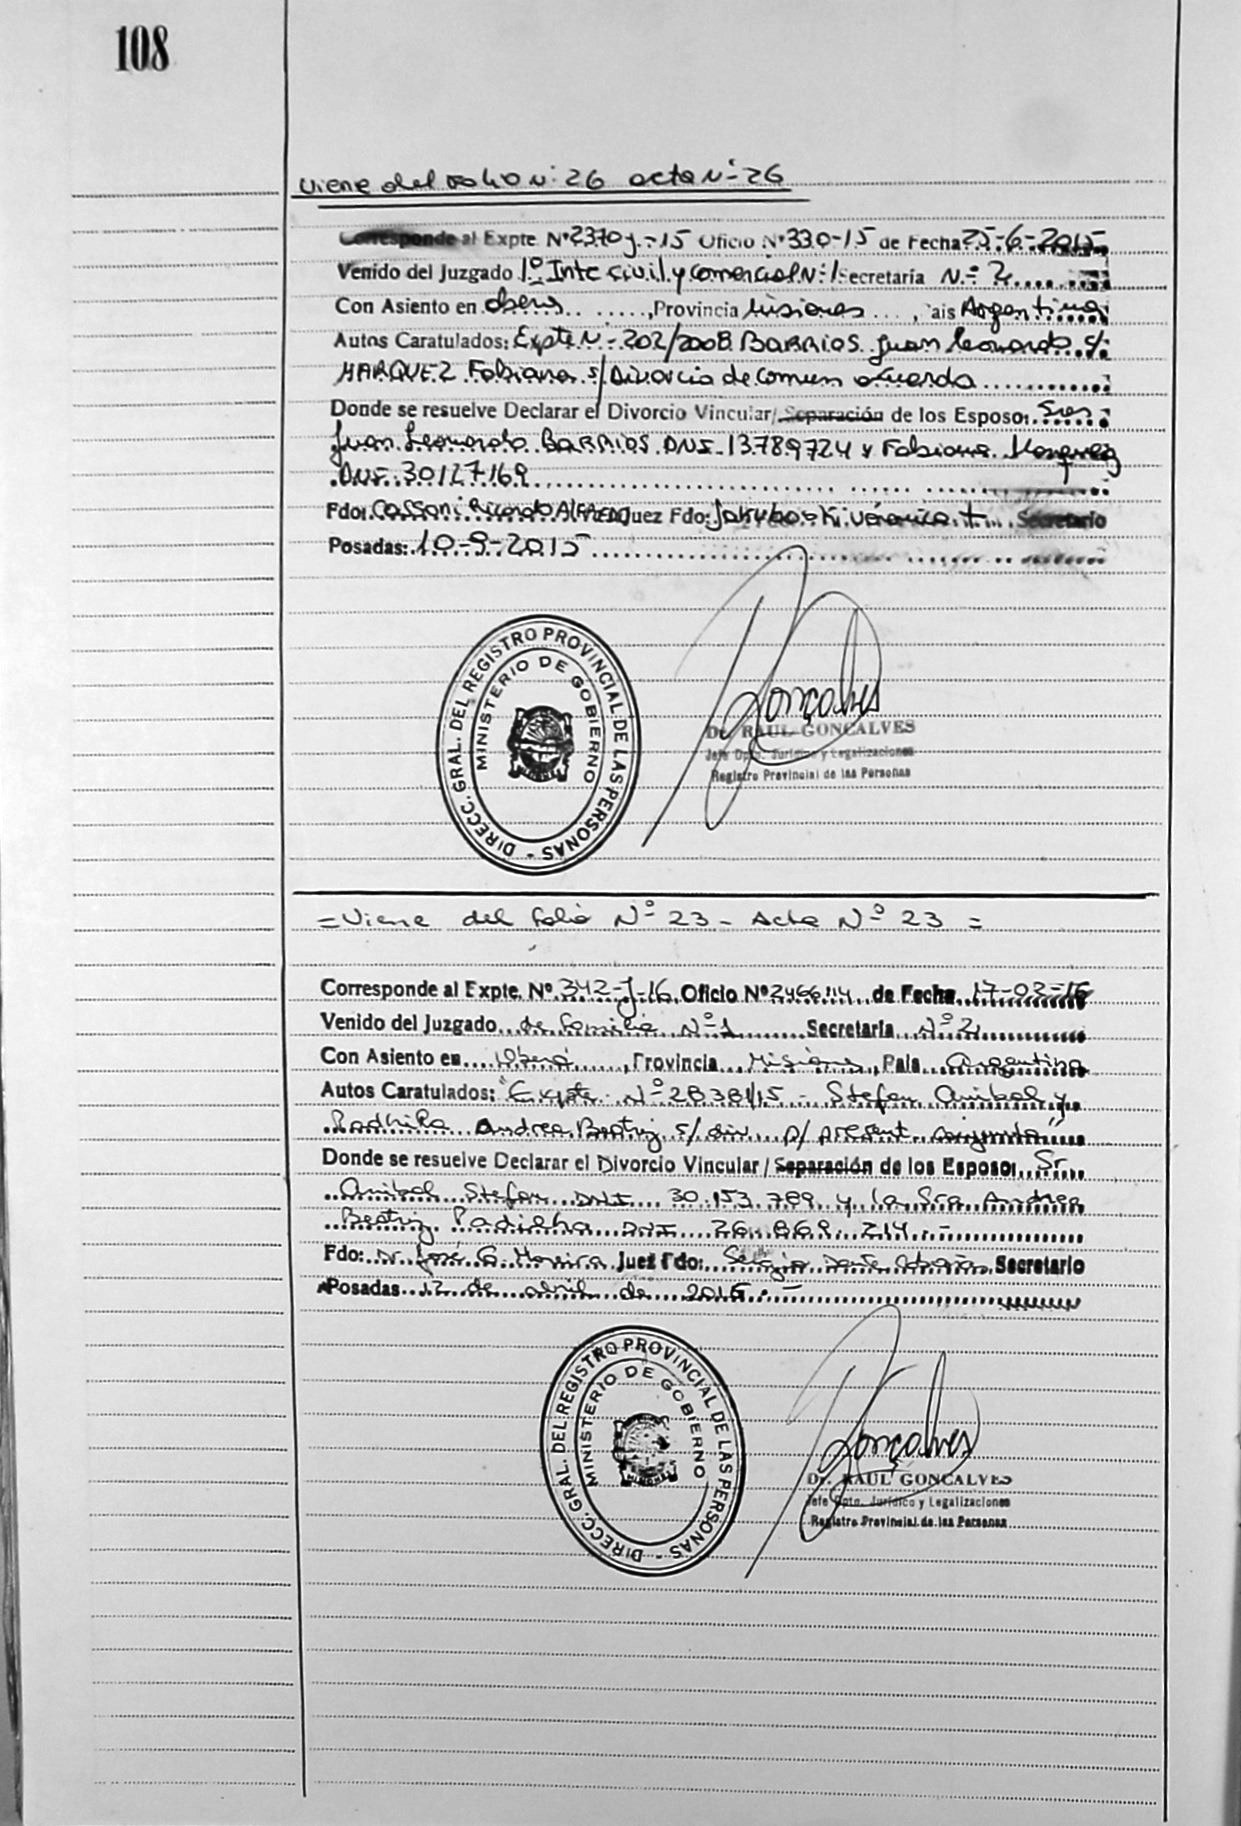 108
Viene del folio Nº 26 acta Nº 26
Corresponde al Expte. Nº 2370-J-15 Oficio Nº 330-15 de Fecha 25-6-2015
Venido del Juzgado 1º Inte civil y comercial Nº 1 Secretaría Nº 2
Con Asiento en Obera, Provincia Misiones, País Argentina
Autos Caratulados: Expte Nº 202/2008 BARRIOS Juan Leonardo c/
MARQUEZ Fabiana s/ Divorcio de comun acuerdo
Donde se resuelve Declarar el Divorcio Vincular/Separación de los Esposo: Sres
Juan Leonardo BARRIOS DNI 13.789.724 y Fabiana Marquez
DNI 30127169
Fdo: Cassoni Ricardo Alfredo Juez Fdo: Jakubowski Verónica Secretario
Posadas: 10-9-2015
DIRECC. GRAL. DEL REGISTRO PROVINCIAL DE LAS PERSONAS -
MINISTERIO DE GOBIERNO
Gonçalves
Dr. RAUL GONCALVES
Jefe Dpto. Jurídico y Legalizaciones
Registro Provincial de las Personas
= Viene del folio Nº 23 - Acta Nº 23 =
Corresponde al Expte. Nº 342-J-16 Oficio Nº 2466/14 de Fecha 17-02-16
Venido del Juzgado de familia Nº 1 Secretaría Nº 2
Con Asiento en Oberá, Provincia Misiones, País Argentina
Autos Caratulados: "Expte. Nº 2838/15 - Stefan Anibal y
Andrea Beatriz s/ div. p/ present. conjunta"
Donde se resuelve Declarar el Divorcio Vincular / Separación de los Esposo: Sr.
Anibal Stefan DNI 30.153.789 y la Sra Andrea
Beatriz Padilha DNI 26.869.214.-
Fdo: Dr. José G. Moreira Juez Fdo: Sergio Secretario
Posadas 12 de abril de 2016.-
DIRECC. GRAL. DEL REGISTRO PROVINCIAL DE LAS PERSONAS -
MINISTERIO DE GOBIERNO
MISIONES
Gonçalves
Dr. RAUL GONCALVES
Jefe Dpto. Jurídico y Legalizaciones
Registro Provincial de las Personas